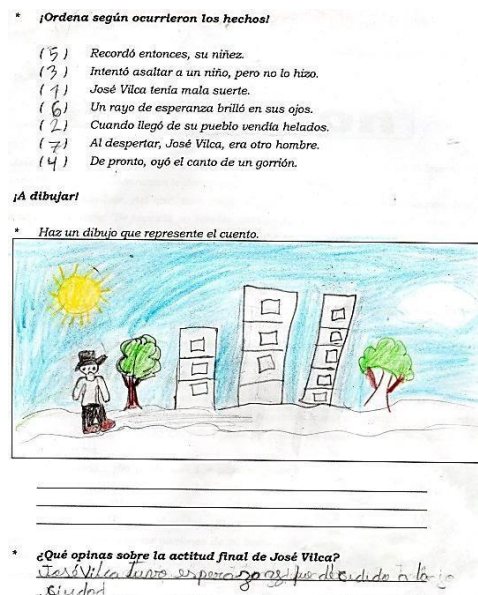 * ¡Ordena según ocurrieron los hechos!
( 5 ) Recordó entonces, su niñez.
( 3 ) Intentó asaltar a un niño, pero no lo hizo.
( 1 ) José Vilca tenía mala suerte.
( 6 ) Un rayo de esperanza brilló en sus ojos.
( 2 ) Cuando llegó de su pueblo vendía helados.
( 7 ) Al despertar, José Vilca, era otro hombre.
( 4 ) De pronto, oyó el canto de un gorrión.
¡A dibujar!
* Haz un dibujo que represente el cuento.
* ¿Qué opinas sobre la actitud final de José Vilca?
José Vilca tuvo fue decidido a la
siudad